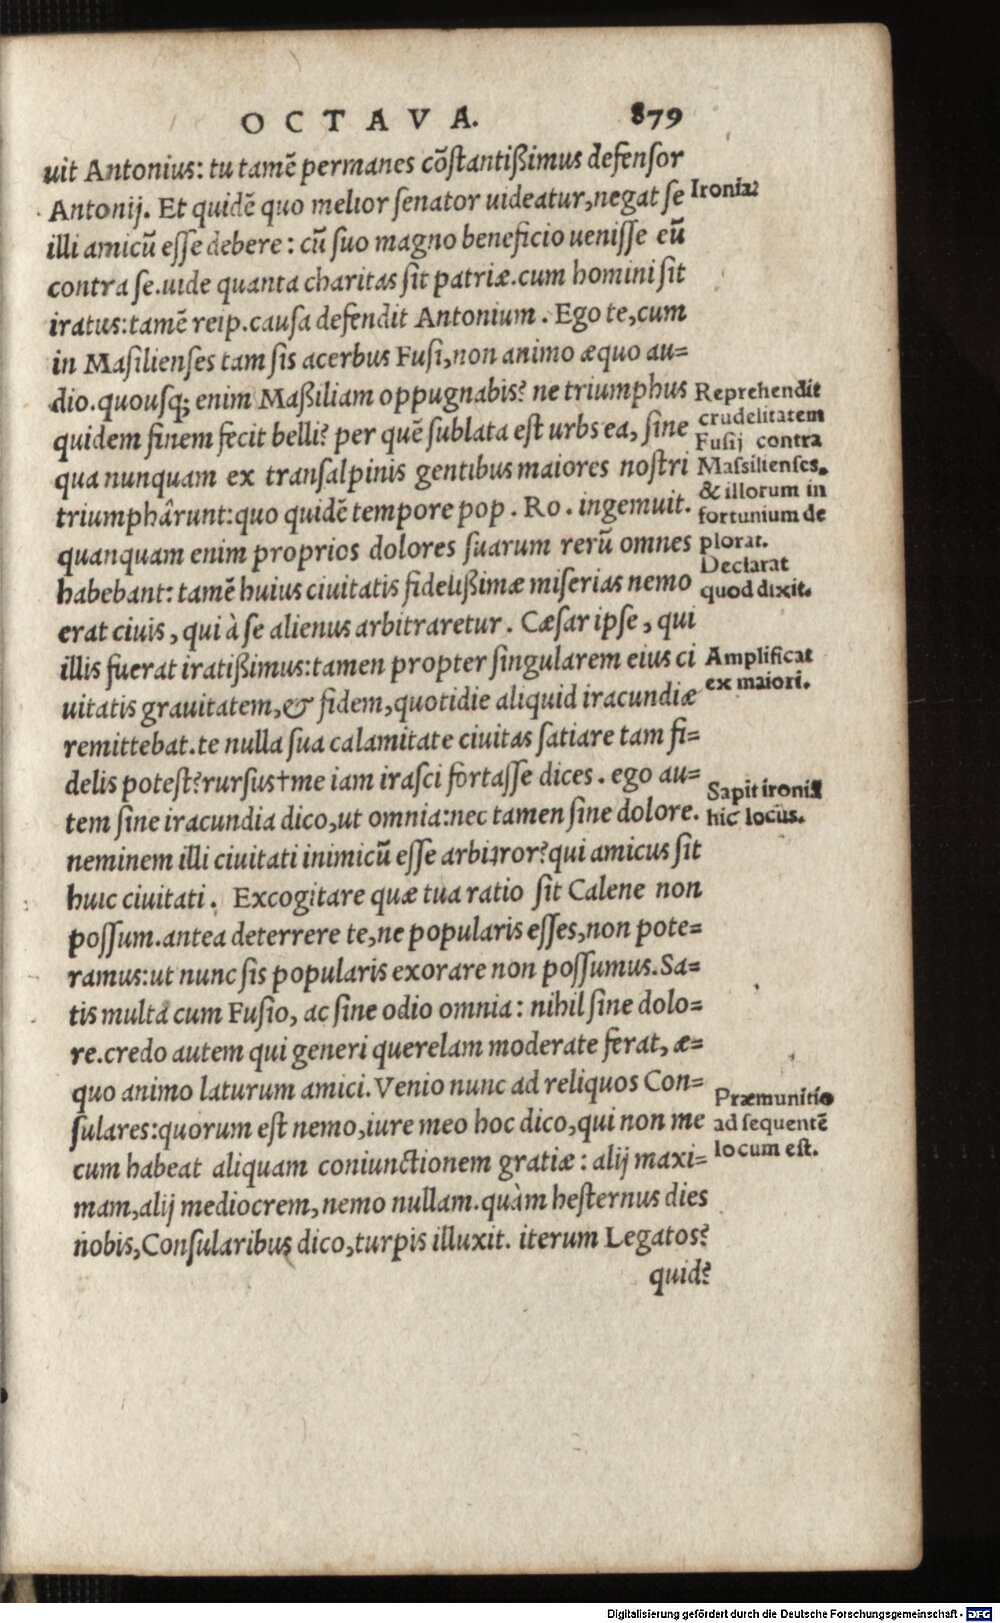 OCTAVA. 879
uit Antonius: tu tamē permanes cõstantißimus defensor
Antonij. Et quidē quo melior senator uideatur, negat se
illi amicū esse debere: cū suo magno beneficio uenisse eū
contra se. uide quanta charitas sit patriæ. cum homini sit
iratus: tamē reip. causa defendit Antonium. Ego te, cum
in Masilienses tam sis acerbus Fusi, non animo æquo au=
dio. quousq; enim Maßiliam oppugnabis? ne triumphus
quidem finem fecit belli? per quē sublata est urbs ea, sine
qua nunquam ex transalpinis gentibus maiores nostri
triumphârunt: quo quidē tempore pop. Ro. ingemuit.
quanquam enim proprios dolores suarum rerū omnes
habebant: tamē huius ciuitatis fidelißimæ miserias nemo
erat ciuis, qui à se alienus arbitraretur. Cæsar ipse, qui
illis fuerat iratißimus: tamen propter singularem eius ci
uitatis grauitatem, & fidem, quotidie aliquid iracundiæ
remittebat. te nulla sua calamitate ciuitas satiare tam fi=
delis potest? rursus†me iam irasci fortasse dices. ego au=
tem sine iracundia dico, ut omnia: nec tamen sine dolore.
neminem illi ciuitati inimicū esse arbitror? qui amicus sit
huic ciuitati. Excogitare quæ tua ratio sit Calene non
possum. antea deterrere te, ne popularis esses, non pote=
ramus: ut nunc sis popularis exorare non possumus. Sa=
tis multa cum Fusio, ac sine odio omnia: nihil sine dolo=
re. credo autem qui generi querelam moderate ferat, æ=
quo animo laturum amici. Venio nunc ad reliquos Con=
sulares: quorum est nemo, iure meo hoc dico, qui non me
cum habeat aliquam coniunctionem gratiæ: alij maxi=
mam, alij mediocrem, nemo nullam. quàm hesternus dies
nobis, Consularibus dico, turpis illuxit. iterum Legatos?
quid?
Ironia:
Reprehendit
crudelitatem
Fusij contra
Massilienses,
& illorum in
fortunium de
plorat.
Declarat
quod dixit.
Amplificat
ex maiori.
Sapit ironiā
hic locus.
Præmunitio
ad sequentē
locum est.
Digitalisierung gefördert durch die Deutsche Forschungsgemeinschaft - DFG